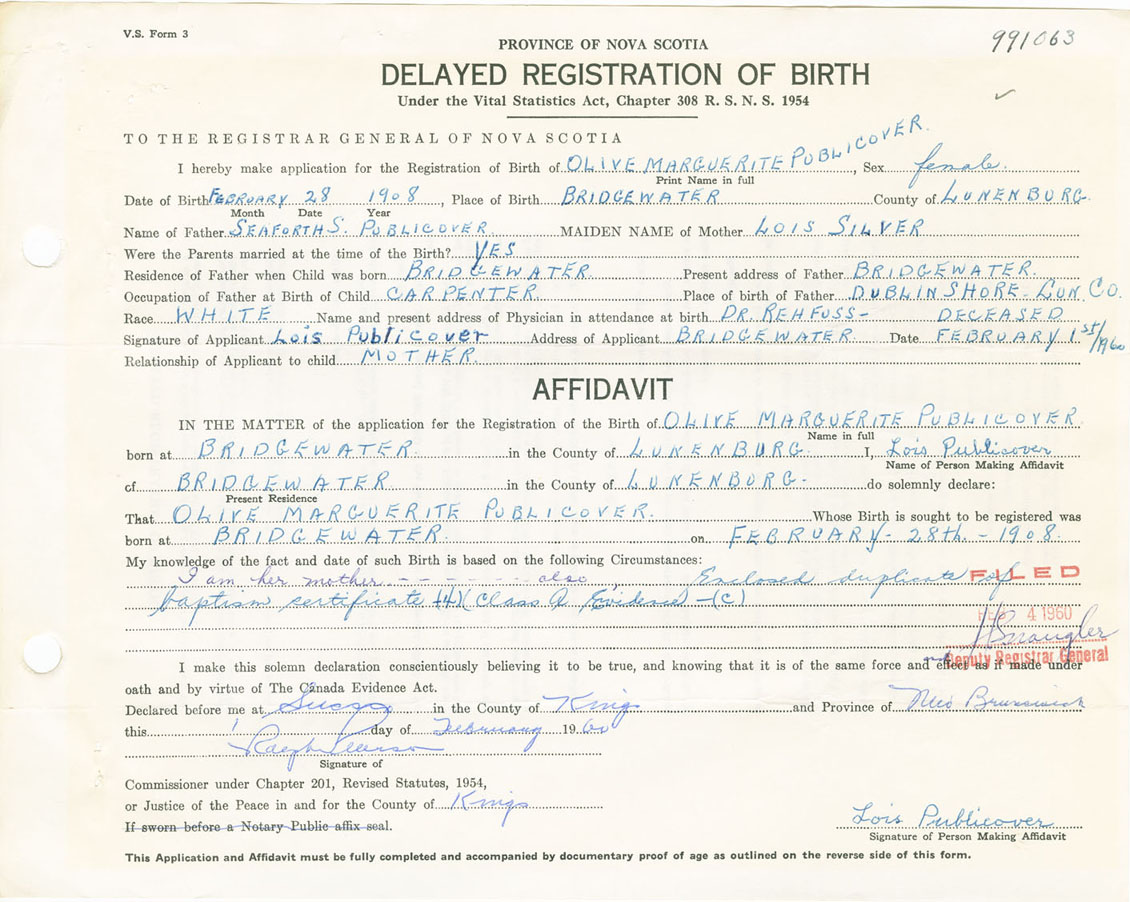 V.S. Form 3
991063
PROVINCE OF NOVA SCOTIA
DELAYED REGISTRATION OF BIRTH
Under the Vital Statistics Act, Chapter 308 R. S. N. S. 1954
TO THE REGISTRAR GENERAL OF NOVA SCOTIA
I hereby make application for the Registration of Birth of OLIVE MARGUERITE PUBLICOVER, Sex female.
Print Name in full
Date of Birth FEBRUARY 28 1908, Place of Birth BRIDGEWATER County of LUNENBURG.
Month Date Year
Name of Father SEAFORTH S. PUBLICOVER MAIDEN NAME of Mother LOIS SILVER
Were the Parents married at the time of the Birth? YES
Residence of Father when Child was born BRIDGEWATER Present address of Father BRIDGEWATER
Occupation of Father at Birth of Child CARPENTER Place of birth of Father DUBLIN SHORE - LUN. CO.
Race WHITE Name and present address of Physician in attendance at birth DR. REHFUSS - DECEASED
Signature of Applicant Lois Publicover Address of Applicant BRIDGEWATER Date FEBRUARY 1st/1960
Relationship of Applicant to child MOTHER.
AFFIDAVIT
IN THE MATTER of the application for the Registration of the Birth of OLIVE MARGUERITE PUBLICOVER
Name in full
born at BRIDGEWATER in the County of LUNENBURG. I, Lois Publicover
Name of Person Making Affidavit
of BRIDGEWATER in the County of LUNENBURG - do solemnly declare:
Present Residence
That OLIVE MARGUERITE PUBLICOVER. Whose Birth is sought to be registered was
born at BRIDGEWATER on FEBRUARY - 28th. - 1908.
My knowledge of the fact and date of such Birth is based on the following Circumstances:
I am her mother - - - - - - - also Enclosed duplicate of
FILED
baptism certificate (Class A Evidence - (C)
FEB 4 1960
Deputy Registrar General
I make this solemn declaration conscientiously believing it to be true, and knowing that it is of the same force and effect as if made under
oath and by virtue of The Canada Evidence Act.
Declared before me at Sussex in the County of Kings and Province of New Brunswick
this 1 day of February 1960
Ralph Pearson
Signature of
Commissioner under Chapter 201, Revised Statutes, 1954,
or Justice of the Peace in and for the County of Kings
If sworn before a Notary Public affix seal.
Lois Publicover
Signature of Person Making Affidavit
This Application and Affidavit must be fully completed and accompanied by documentary proof of age as outlined on the reverse side of this form.